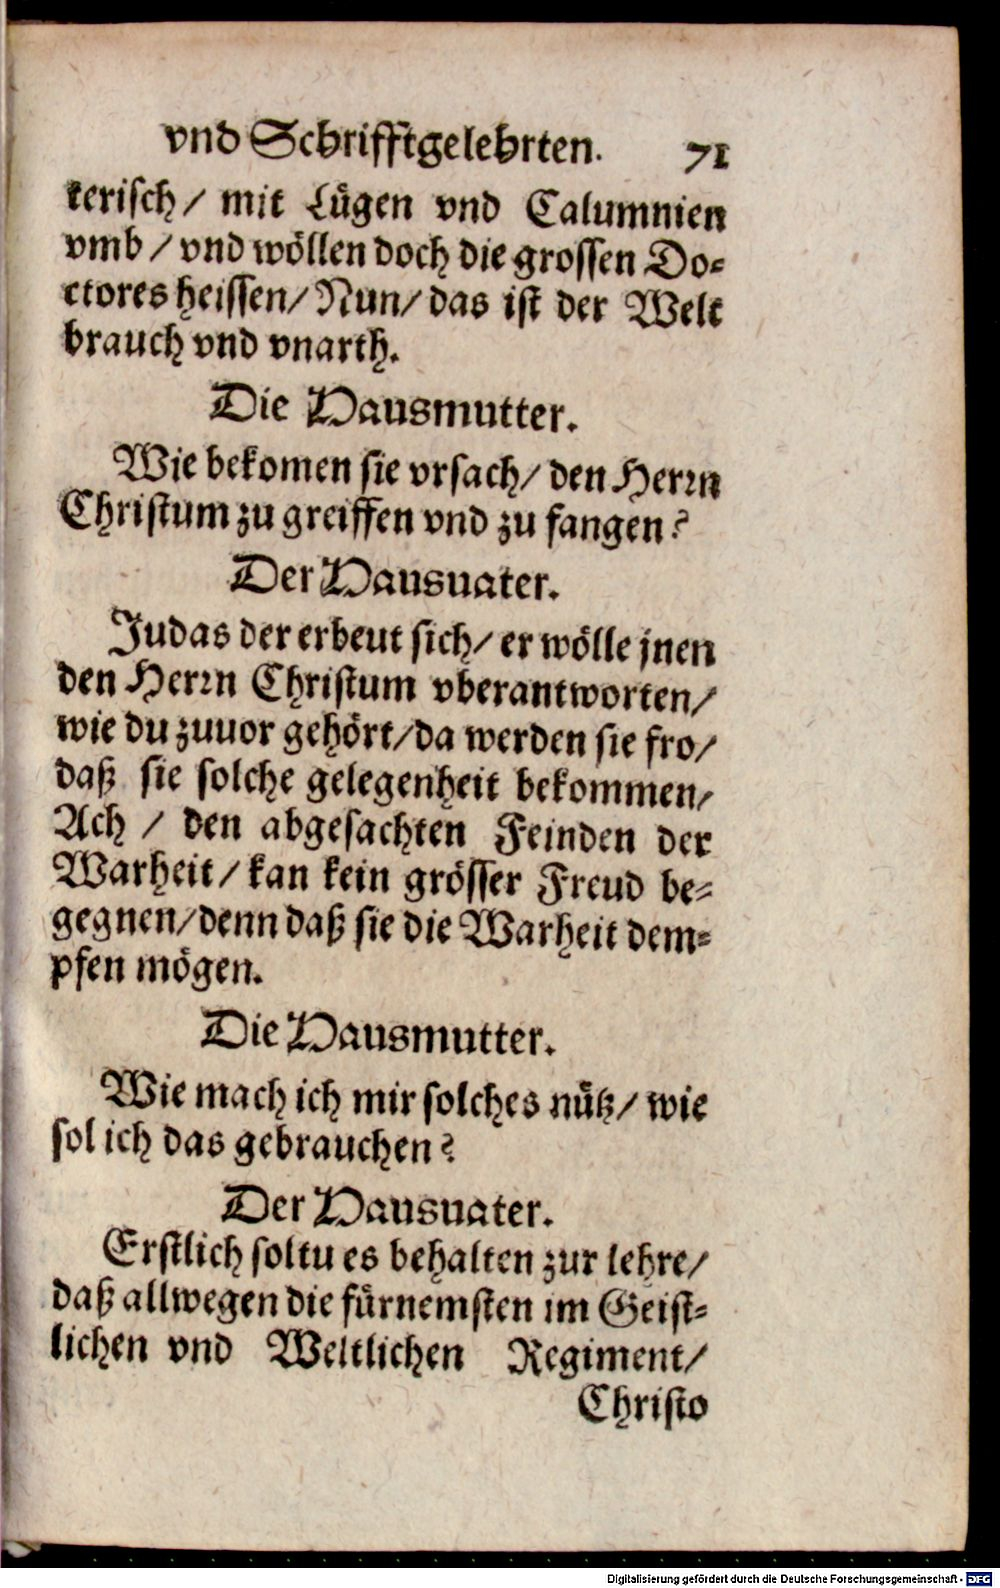 vnd Schrifftgelehrten. 71
kerisch/ mit Lügen vnd Calumnien
vmb / vnd wöllen doch die grossen Do-
ctores heissen/ Nun/ das ist der Welt
brauch vnd vnarth.
Die Hausmutter.
Wie bekomen sie vrsach/ den Herrn
Christum zu greiffen vnd zu fangen?
Der Hausuater.
Judas der erbeut sich/ er wölle jnen
den Herrn Christum vberantworten/
wie du zuuor gehört/ da werden sie fro/
daß sie solche gelegenheit bekommen/
Ach / den abgesachten Feinden der
Warheit/ kan kein grösser Freud be-
gegnen/ denn daß sie die Warheit dem-
pfen mögen.
Die Hausmutter.
Wie mach ich mir solches nütz/ wie
sol ich das gebrauchen?
Der Hausuater.
Erstlich soltu es behalten zur lehre/
daß allwegen die fürnemsten im Geist-
lichen vnd Weltlichen Regiment/
Christo
Digitalisierung gefördert durch die Deutsche Forschungsgemeinschaft - DFG